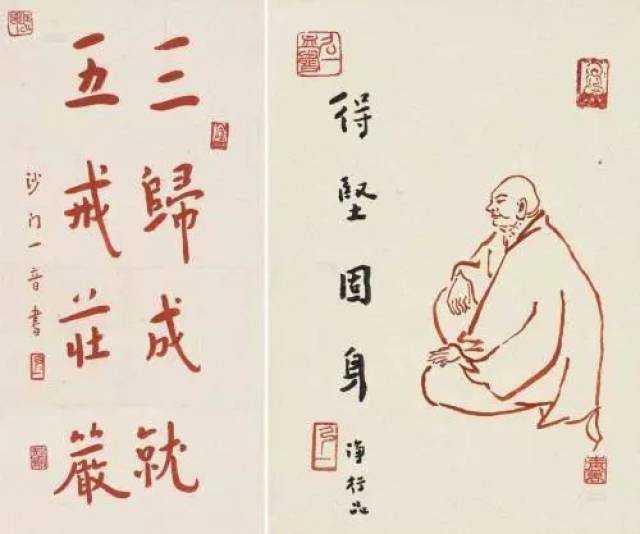 三歸成就
五戒莊嚴
沙门一音書
得堅固身
淨行品